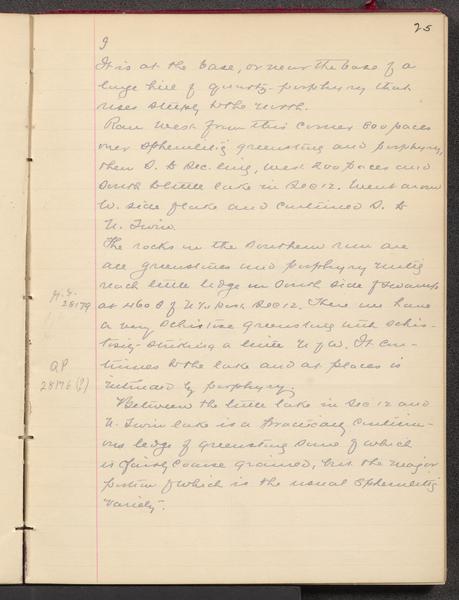 25
I
It is at the base, or near the base of a
large hill of quartz-porphyry that
rises steeply to the north.
Ran West from this corner 800 paces
over spherulitic greenstone and porphyry,
then S. to Sec. line, west 200 paces and
South to little lake in Sec 12. Went around
W. side of lake and continued S. to
N. Twin.
The rocks in the Southern run are
all greenstones and porphyry until
reach little ledge on South side of Swamp
H.S.
28179
at 460 of N.W. post Sec 12. There we have
a very schistose greenstone with schis-
tosity striking a little N of W. It con-
QP
28176 (?)
tinues to the lake and at places is
intruded by porphyry.
Between the little lake in Sec 12 and
N. Twin lake is a practically continu-
ous ledge of greenstone some of which
is fairly coarse grained, but the major
portion of which is the usual spherulitic
variety.